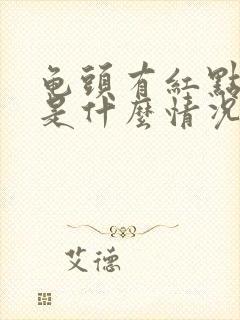 龟頭有紅點
是什麼情況
艾德